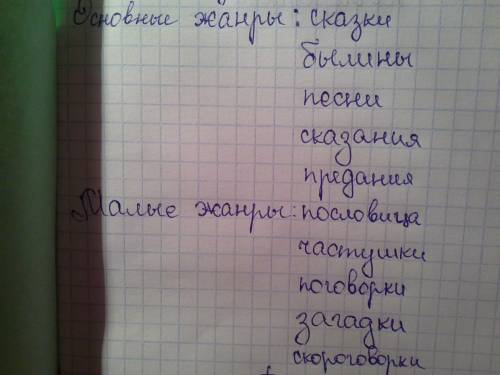 Основные жанры: сказки
былины
песни
сказания
предания
Малые жанры: пословица
частушки
поговорки
загадки
скороговорки